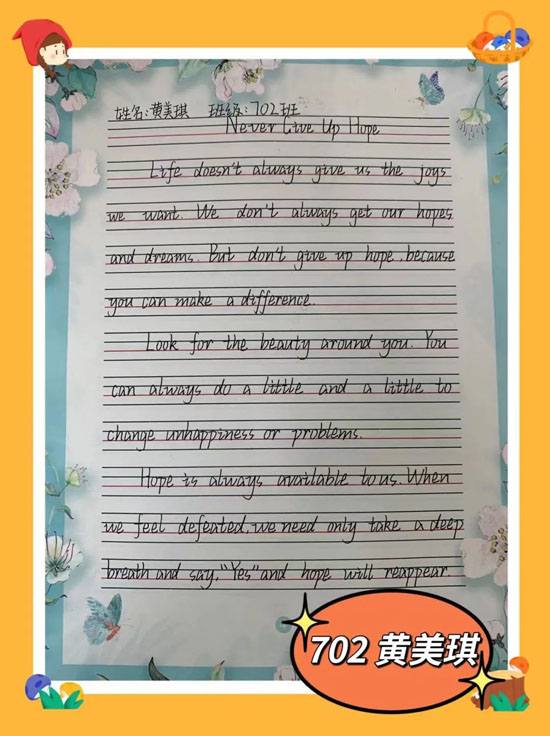 姓名:黄美琪 班级:702班
Never Give Up Hope
Life doesn't always give us the joys
we want. We don't always get our hopes
and dreams. But don't give up hope, because
you can make a difference.
Look for the beauty around you. You
can always do a little and a little to
change unhappiness or problems.
Hope is always available to us. When
we feel defeated, we need only take a deep
breath and say, "Yes" and hope will reappear.
702 黄美琪